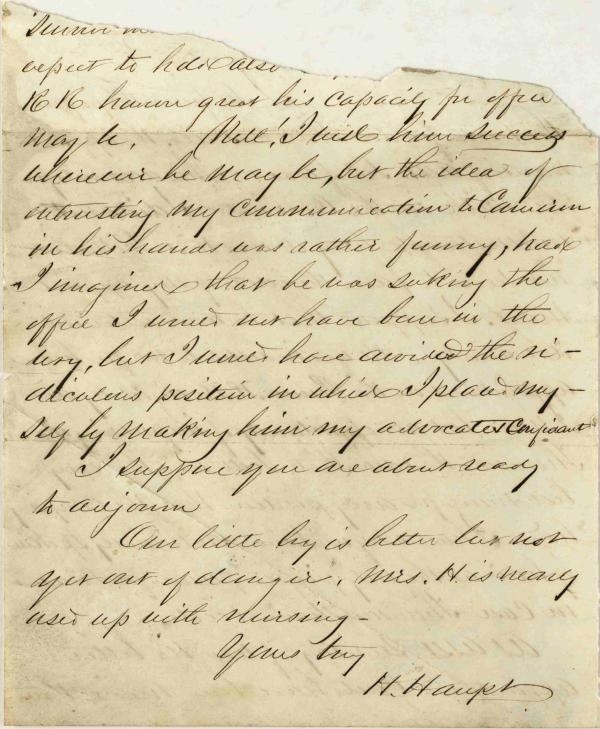 expect to hold also
R R however great his capacity for office
may be. Well! I wish him success
wherever he may be, but the idea of
entrusting my communication to Cameron
in his hands was rather funny, had
I imagined that he was seeking the
office I would not have been in the
way, but I would have avoided the ri-
diculous position in which I placed my-
self by making him my advocate & confidant
I suppose you are about ready
to adjourn
Our little boy is better but not
yet out of danger. Mrs. H is nearly
used up with nursing-
Yours try
H. Haupt